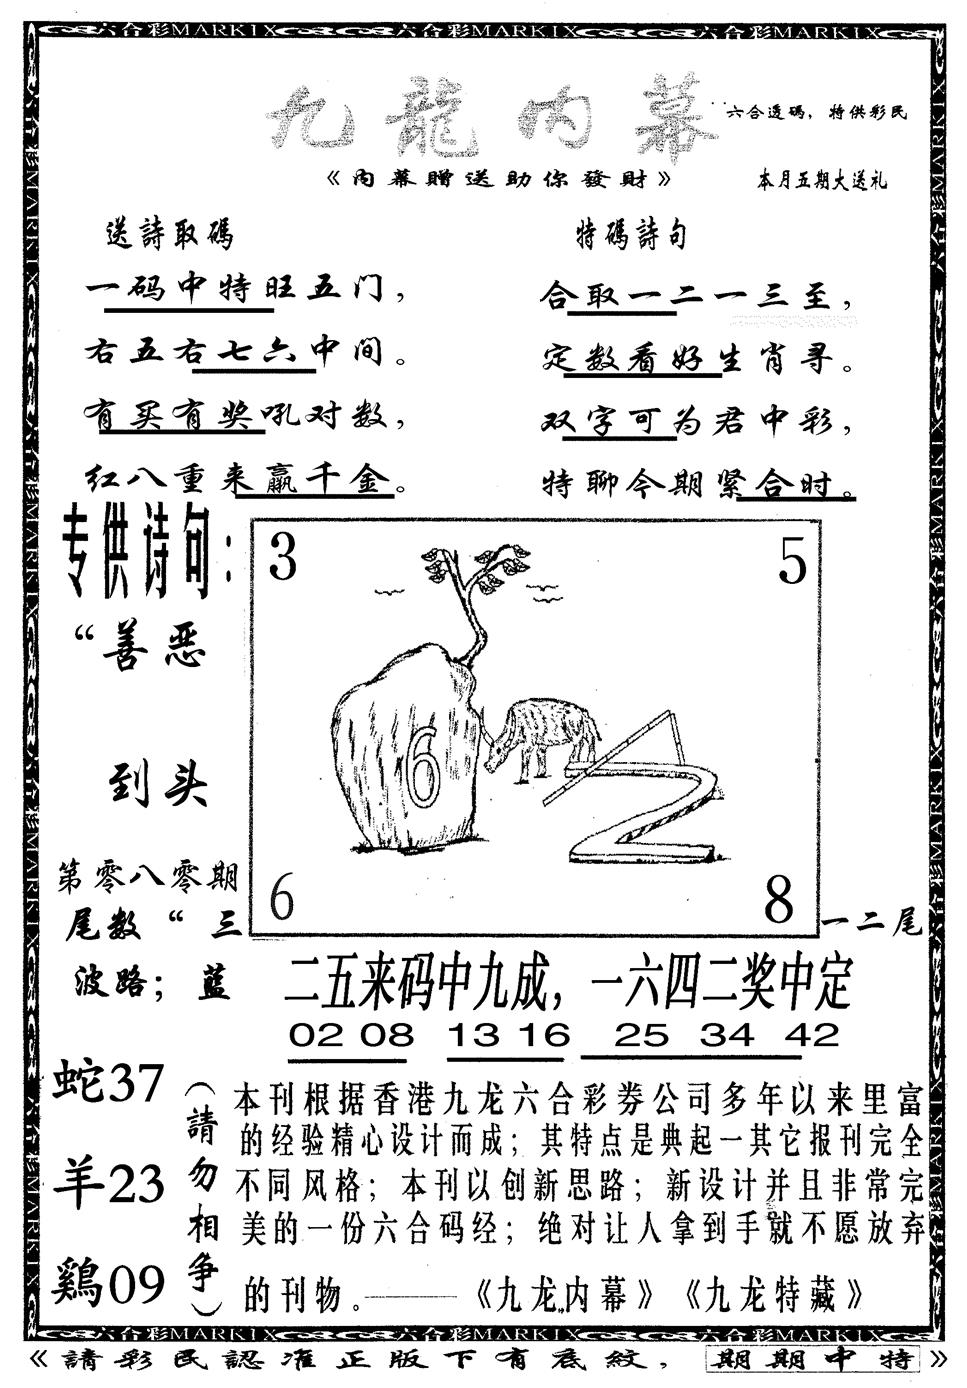 六合彩MARKIX 六合彩MARKIX 六合彩MARKIX
九龍内幕
六合透码，特供彩民
《内幕贈送助你發財》
本月五期大送礼
送詩取碼
一码中特旺五门，
右五右七六中间。
有买有奖吼对数，
红八重来赢千金。
特碼詩句
合取一二一三至，
定数看好生肖寻。
双字可为君中彩，
特聊今期紧合时。
专供诗句：
“善恶
到头
第零八零期
尾数“三
一二尾
波路；蓝
3
5
6
2
6
8
二五来码中九成，一六四二奖中定
02 08 13 16 25 34 42
蛇37
羊23
鷄09
（請勿相争）
本刊根据香港九龙六合彩券公司多年以来里富
的经验精心设计而成；其特点是典起一其它报刊完全
不同风格；本刊以创新思路；新设计并且非常完
美的一份六合码经；绝对让人拿到手就不愿放弃
的刊物。——《九龙内幕》《九龙特藏》
六合彩MARKIX 六合彩MARKIX 六合彩MARKIX
《請彩民認准正版下有底紋，期期中特》